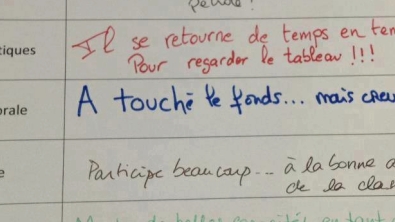 pendu !
tiques
Il se retourne de temps en tem
Pour regarder le tableau !!!
orale
A touché le fonds... mais creu
e
Participe beaucoup... à la bonne a
de la clas
de belles
tant